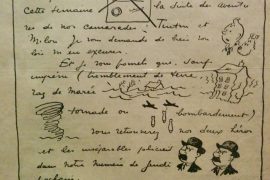 Cette semaine la suite des aventu
res de nos camarades Tintin et
Milou. Je vous demande de bien vou
loir m'en excuser.
Et je vous promets que, sauf
imprévu (tremblement de terre
raz de marée
tornade ou bombardement)
vous retrouverez nos deux héros
et les inséparables policiers
dans notre Numéro de Jeudi
prochain.